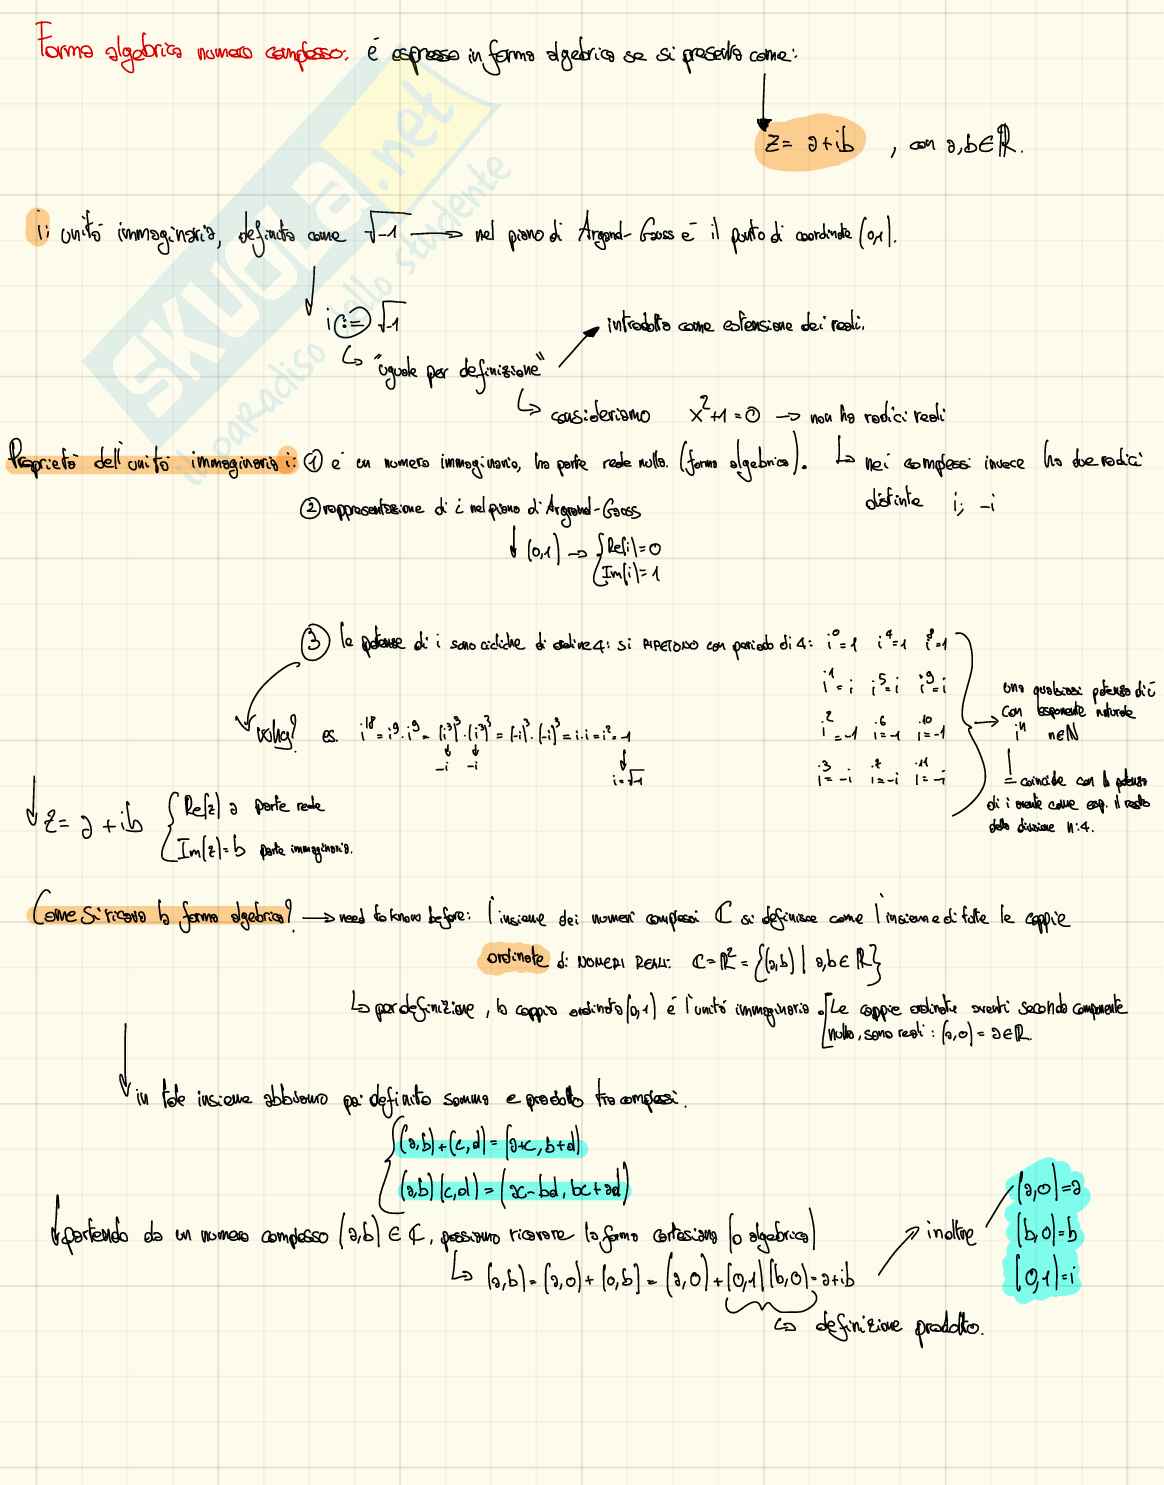 Forma algebrica numero complesso: è espresso in forma algebrica se si presenta come:
z= a+ib , con a,b∈ℝ.
i: unità immaginaria, definita come √-1 → nel piano di Argand-Gauss è il punto di coordinate (0,1).
i := √-1
introdotto come estensione dei reali.
↳ "uguale per definizione"
↳ consideriamo x²+1=0 → non ha radici reali
Proprietà dell'unità immaginaria i: ① è un numero immaginario, ha parte reale nulla. (forma algebrica). ↳ nei complessi invece ha due radici
distinte i; -i
② rappresentazione di i nel piano di Argand-Gauss
↓ (0,1) → { Re(i)=0
Im(i)=1
③ le potenze di i sono cicliche di ordine 4: si RIPETONO con periodo di 4: i⁰=1 i⁴=1 i⁸=1
i¹=i i⁵=i i⁹=i
i²=-1 i⁶=-1 i¹⁰=-1
i³=-i i⁷=-i i¹¹=-i
una qualsiasi potenza di i
con esponente naturale
iⁿ n∈ℕ
coincide con la potenza
di i avente come esp. il resto
della divisione n:4.
why? es. i¹⁸=i⁹·i⁹=(i³)³·(i³)³=(-i)³·(-i)³=i·i=i²=-1
-i -i i=√-1
z= a+ib { Re(z) a parte reale
Im(z)=b parte immaginaria.
Come si ricava la forma algebrica? → need to know before: l'insieme dei numeri complessi ℂ si definisce come l'insieme di tutte le coppie
ordinate di NUMERI REALI: ℂ=ℝ²={(a,b) | a,b∈ℝ}
↳ per definizione, la coppia ordinata (0,1) è l'unità immaginaria. [Le coppie ordinate aventi seconda componente
nulla, sono reali: (a,0)=a∈ℝ
in tale insieme abbiamo poi definito somma e prodotto tra complessi.
(a,b)+(c,d)=(a+c, b+d)
(a,b)(c,d)=(ac-bd, bc+ad)
partendo da un numero complesso (a,b)∈ℂ, possiamo ricavare la forma cartesiana (o algebrica)
↳ (a,b)=(a,0)+(0,b)=(a,0)+(0,1)(b,0)=a+ib
↳ definizione prodotto.
inoltre
(a,0)=a
(b,0)=b
(0,1)=i
SKUOLA.net
il paradiso dello studente